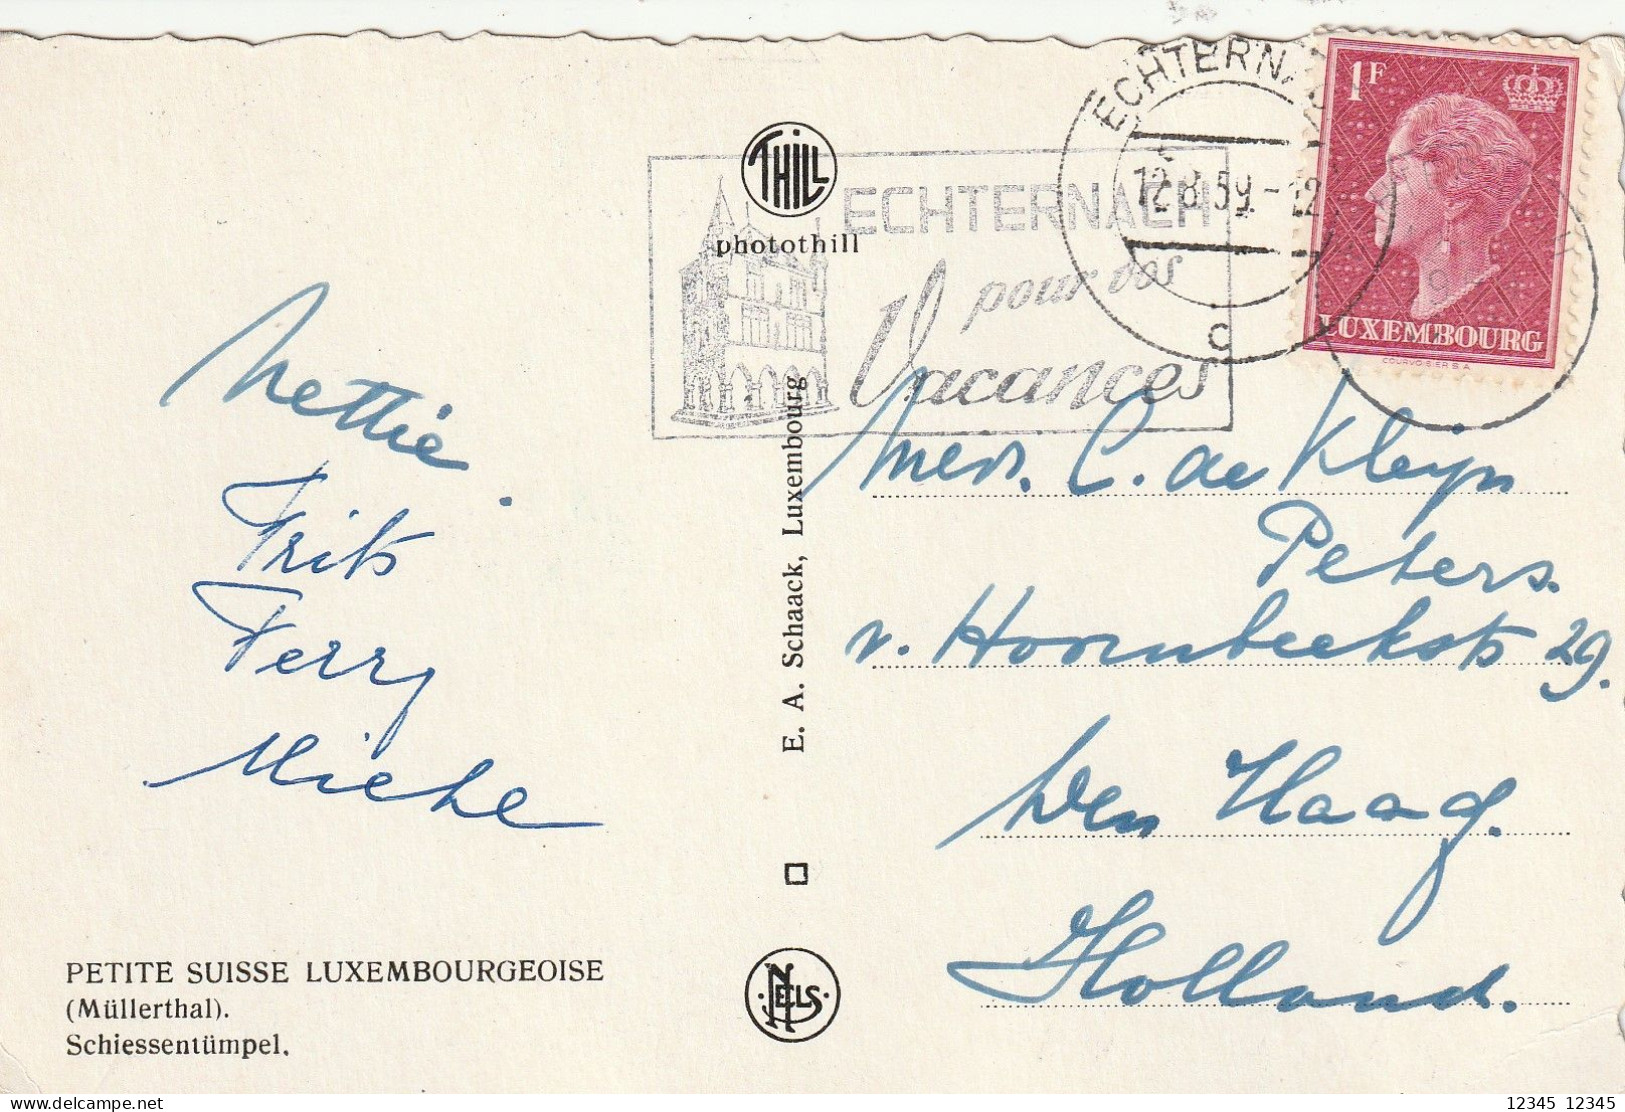 Nettie
Frits
Ferry
Miehe
PETITE SUISSE LUXEMBOURGEOISE
(Müllerthal).
Schiessentümpel.
THILL
photothill
E. A. Schaack, Luxembourg
NELS
ECHTERNACH
pour vos
Vacances
ECHTERNA
12.8.59.-12
C
1F
LUXEMBOURG
COURVOISIER S.A.
Mevr. C. de Kleijn
Peters.
v. Hoornbeekstr 29.
Den Haag.
Holland.
12345 12345